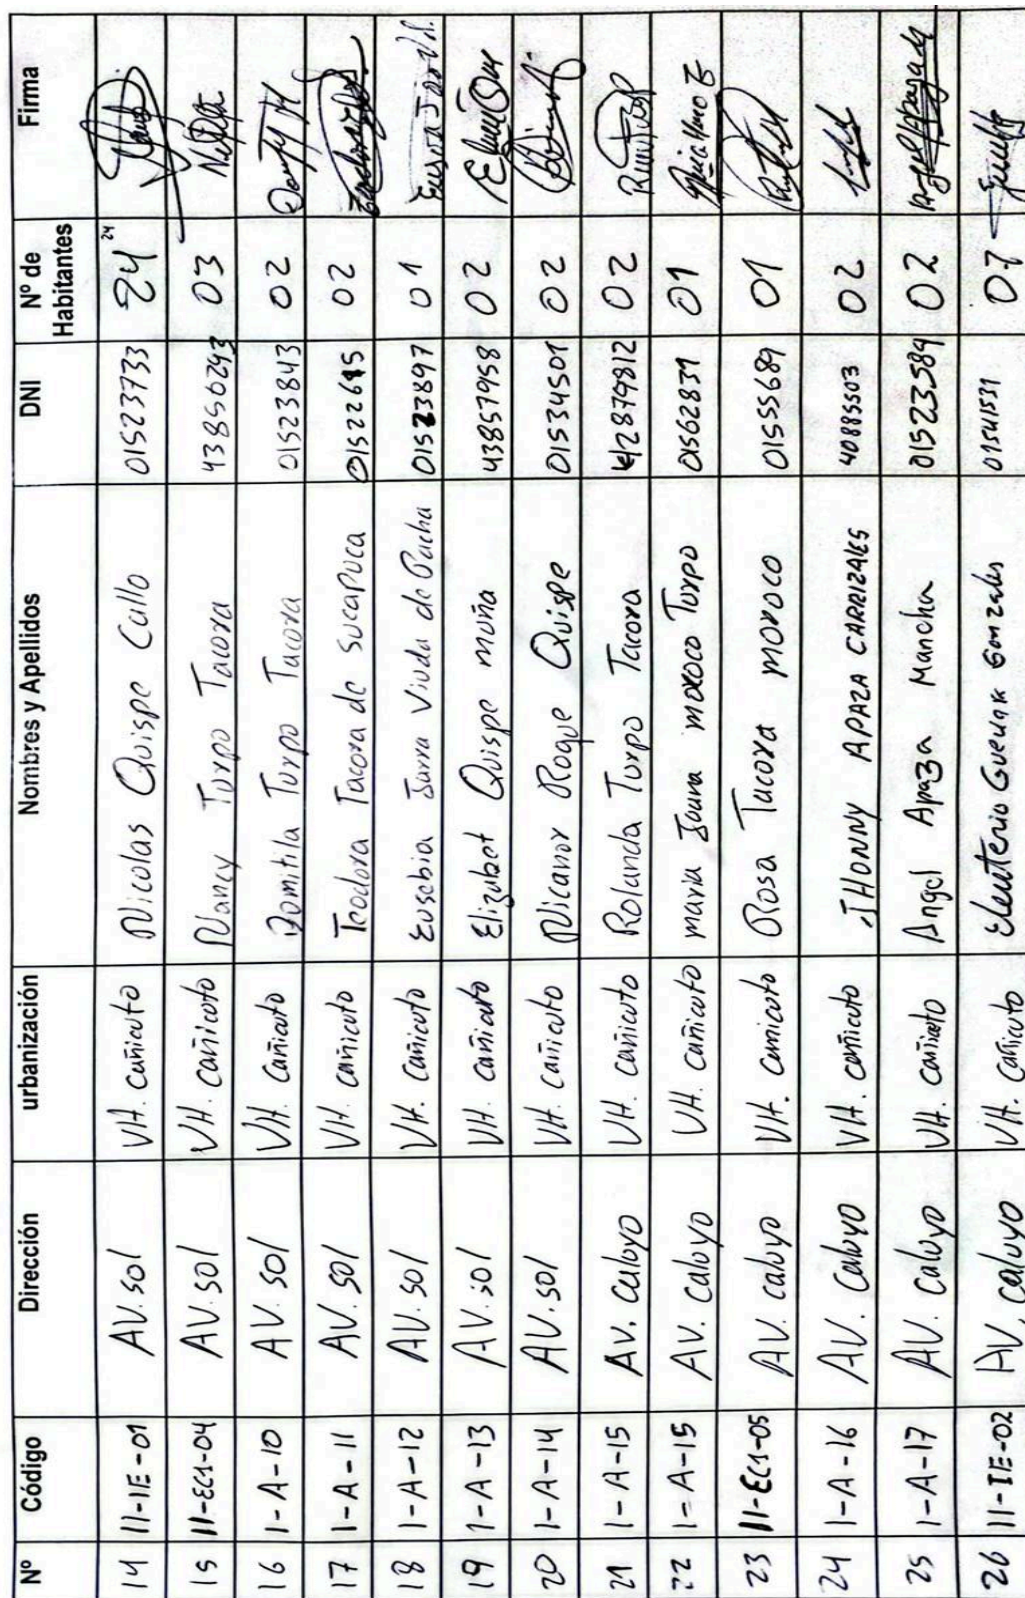 Nº Código Dirección urbanización Nombres y Apellidos DNI Nº de Habitantes Firma
14 11-IE-01 AV. sol VH. cañicuto Nicolas Quispe Cullo 01523733 24 24
15 11-EC1-04 AV. sol VH. cañicuto Nancy Turpo Tacora 43856293 03
16 1-A-10 AV. sol VH. cañicuto Domitila Turpo Tacora 01523843 02
17 1-A-11 AV. sol VH. cañicuto Teodora Tacora de Sucapuca 02
18 1-A-12 AV. sol VH. cañicuto Eusebia Jarra Viuda de Pacha 01523897 01
19 1-A-13 AV. sol VH. cañicuto Elizabet Quispe muña 43857958 02
20 1-A-14 AV. sol VH. cañicuto Nicanor Roque Quispe 01534501 02
21 1-A-15 AV. caluyo VH. cañicuto Rolanda Turpo Tacora 42879812 02
22 1-A-15 AV. caluyo VH. cañicuto maria Juana moroco Turpo 01562831 01
23 11-EC1-05 AV. caluyo VH. cañicuto Rosa Tacora moroco 01555689 01
24 1-A-16 AV. caluyo VH. cañicuto JHONNY APAZA CARRIZALES 40885503 02
25 1-A-17 AV. caluyo VH. cañicuto Angel Apaza Mancha 01523589 02
26 11-IE-02 AV. caluyo VH. cañicuto Eleuterio Guevara Gonzales 01541531 07